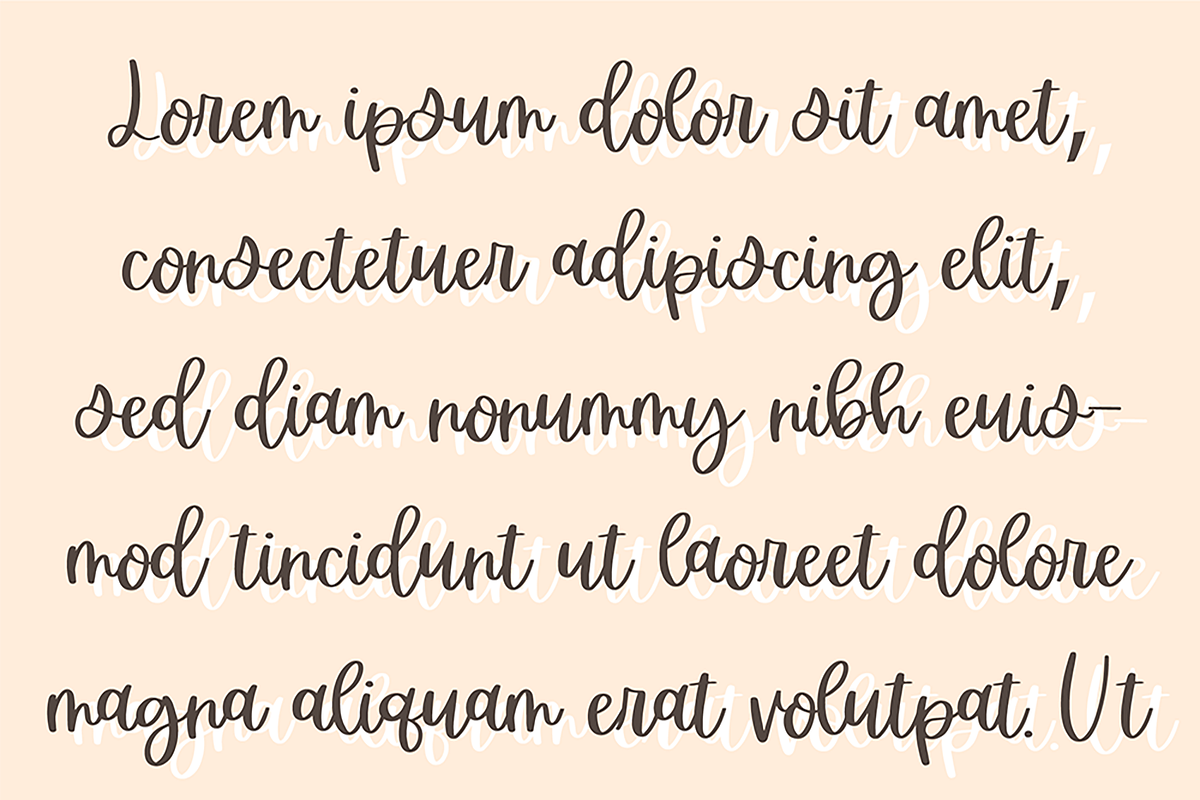 Lorem ipsum dolor sit amet,
consectetuer adipiscing elit,
sed diam nonummy nibh euis-
mod tincidunt ut laoreet dolore
magna aliquam erat volutpat. Ut